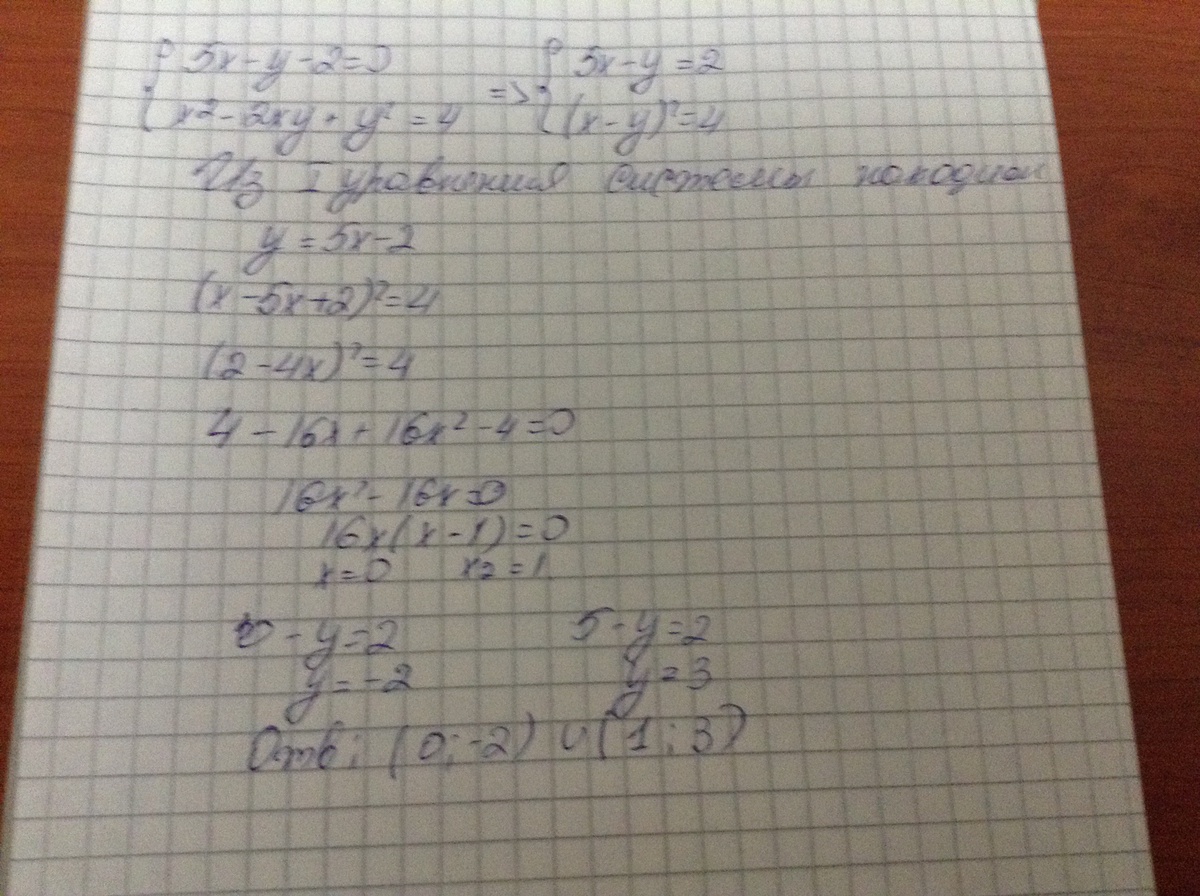 { 5x-y-2=0 => { 5x-y=2
x²-2xy+y²=4 (x-y)²=4
Из I уравнения системы находим
y=5x-2
(x-5x+2)²=4
(2-4x)²=4
4-16x+16x²-4=0
16x²-16x=0
16x(x-1)=0
x=0 x2=1
0-y=2 5-y=2
y=-2 y=3
Отв: (0;-2) и (1;3)